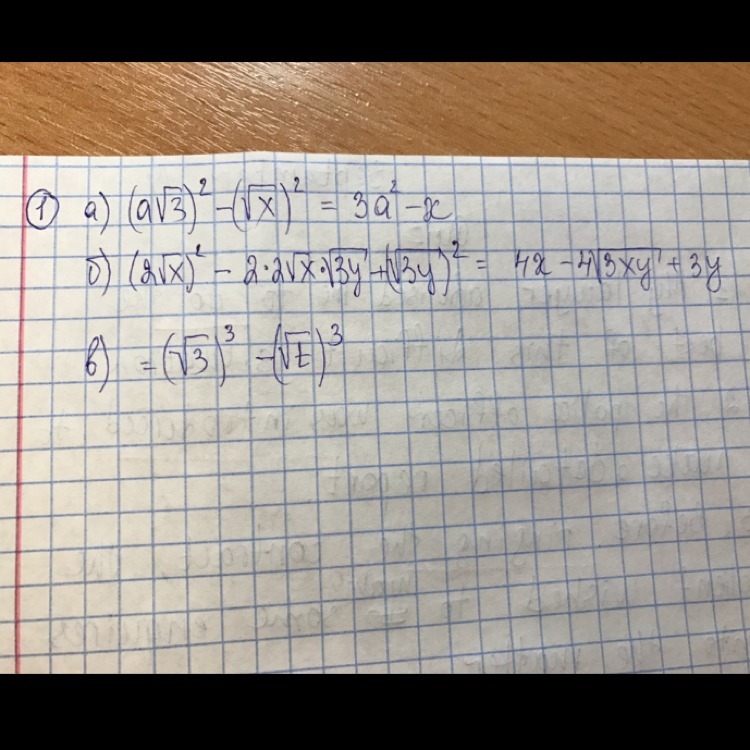 ① а) (a√3)² - (√x)² = 3a² - x
б) (2√x)² - 2·2√x·√3y + (√3y)² = 4x - 4√3xy + 3y
в) = (√3)³ - (√t)³